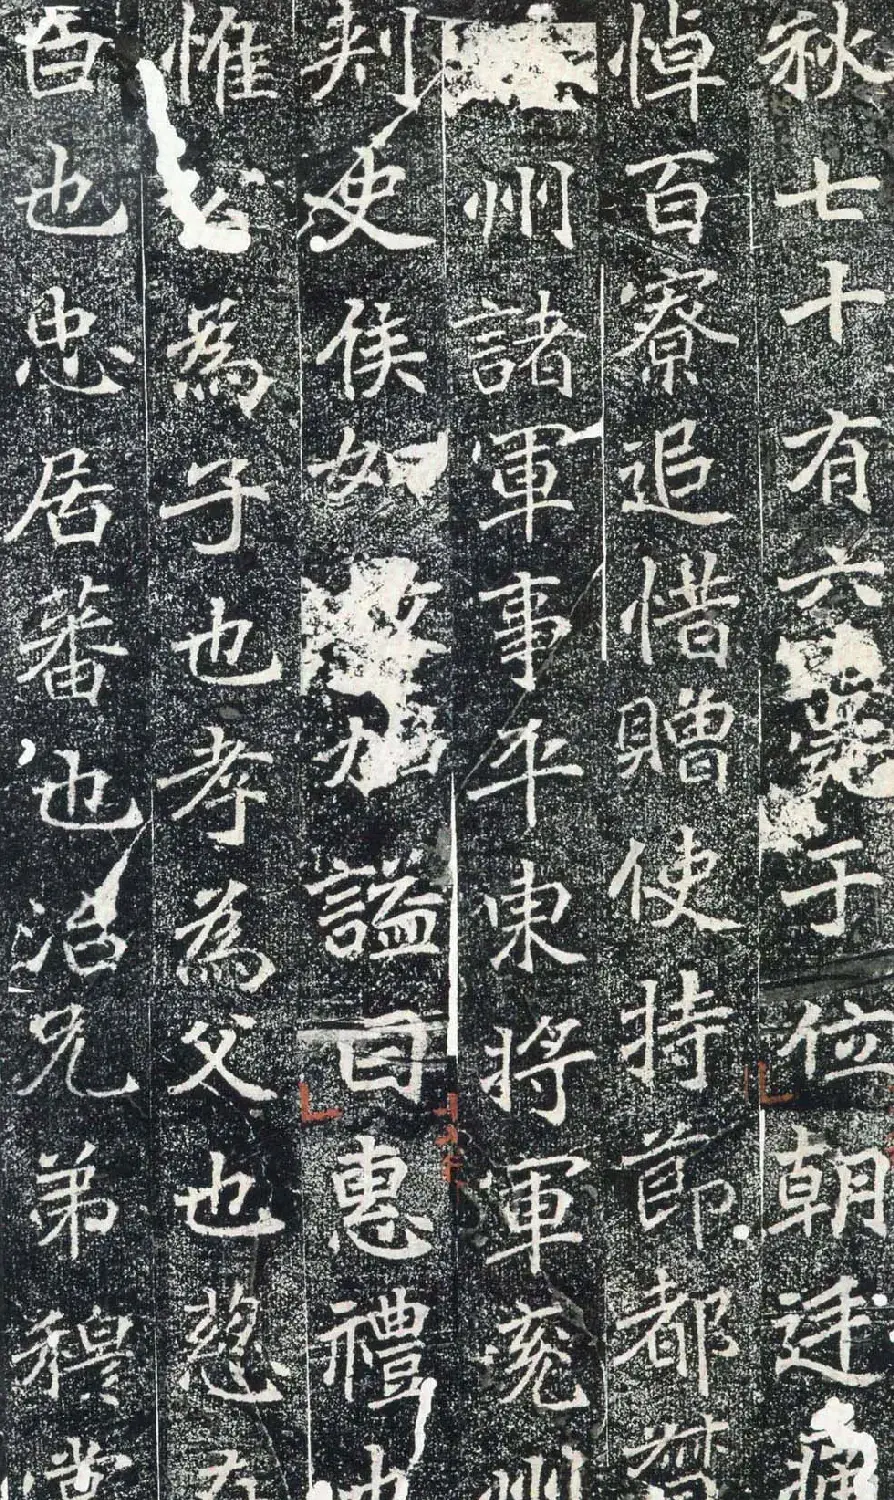 秋七十有六薨于位朝廷痛
悼百寮追惜贈使持節都督
州諸軍事平東將軍兖州
刾史侯如故加謚曰惠禮也
惟公為子也孝為父也慈
臣也忠居蕃也治兄弟穆常